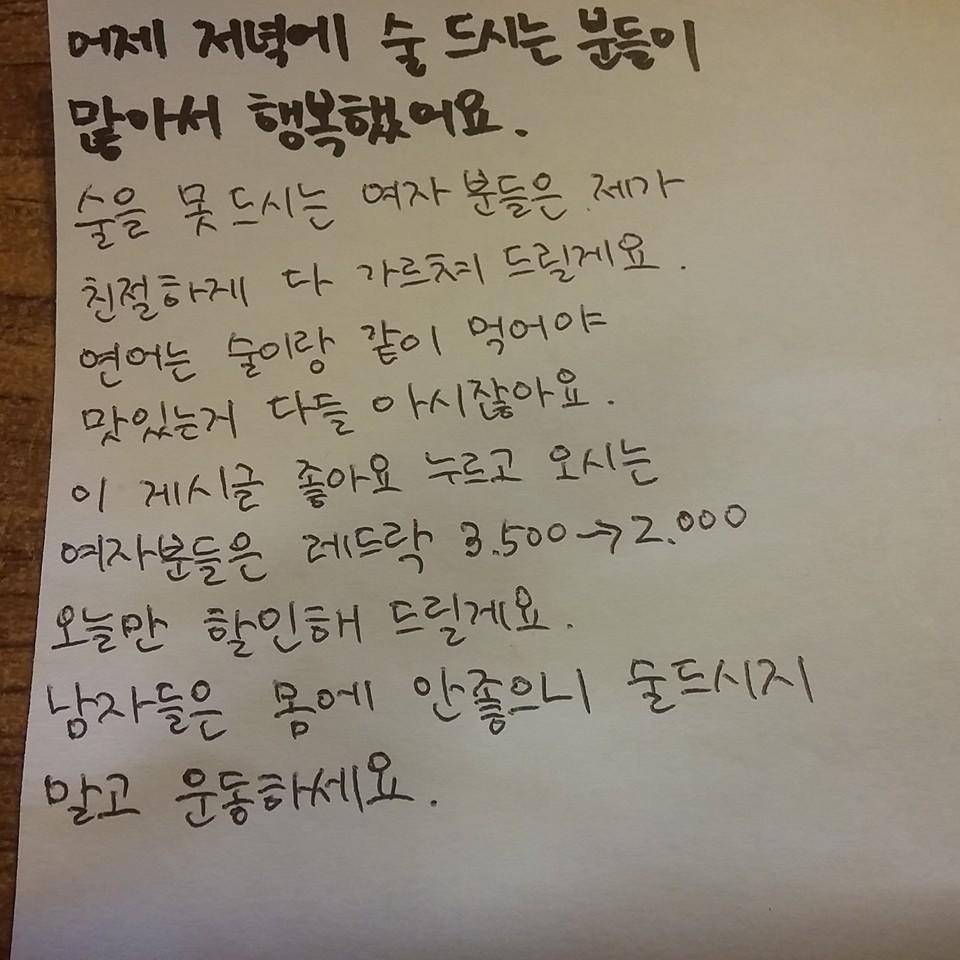 어제 저녁에 술 드시는 분들이
많아서 행복했어요.
술을 못 드시는 여자분들은 제가
친절하게 다 가르쳐 드릴게요.
연어는 술이랑 같이 먹어야
맛있는거 다들 아시잖아요.
이 게시글 좋아요 누르고 오시는
여자분들은 레드락 3.500→2.000
오늘만 할인해 드릴게요.
남자들은 몸에 안좋으니 술드시지
말고 운동하세요.